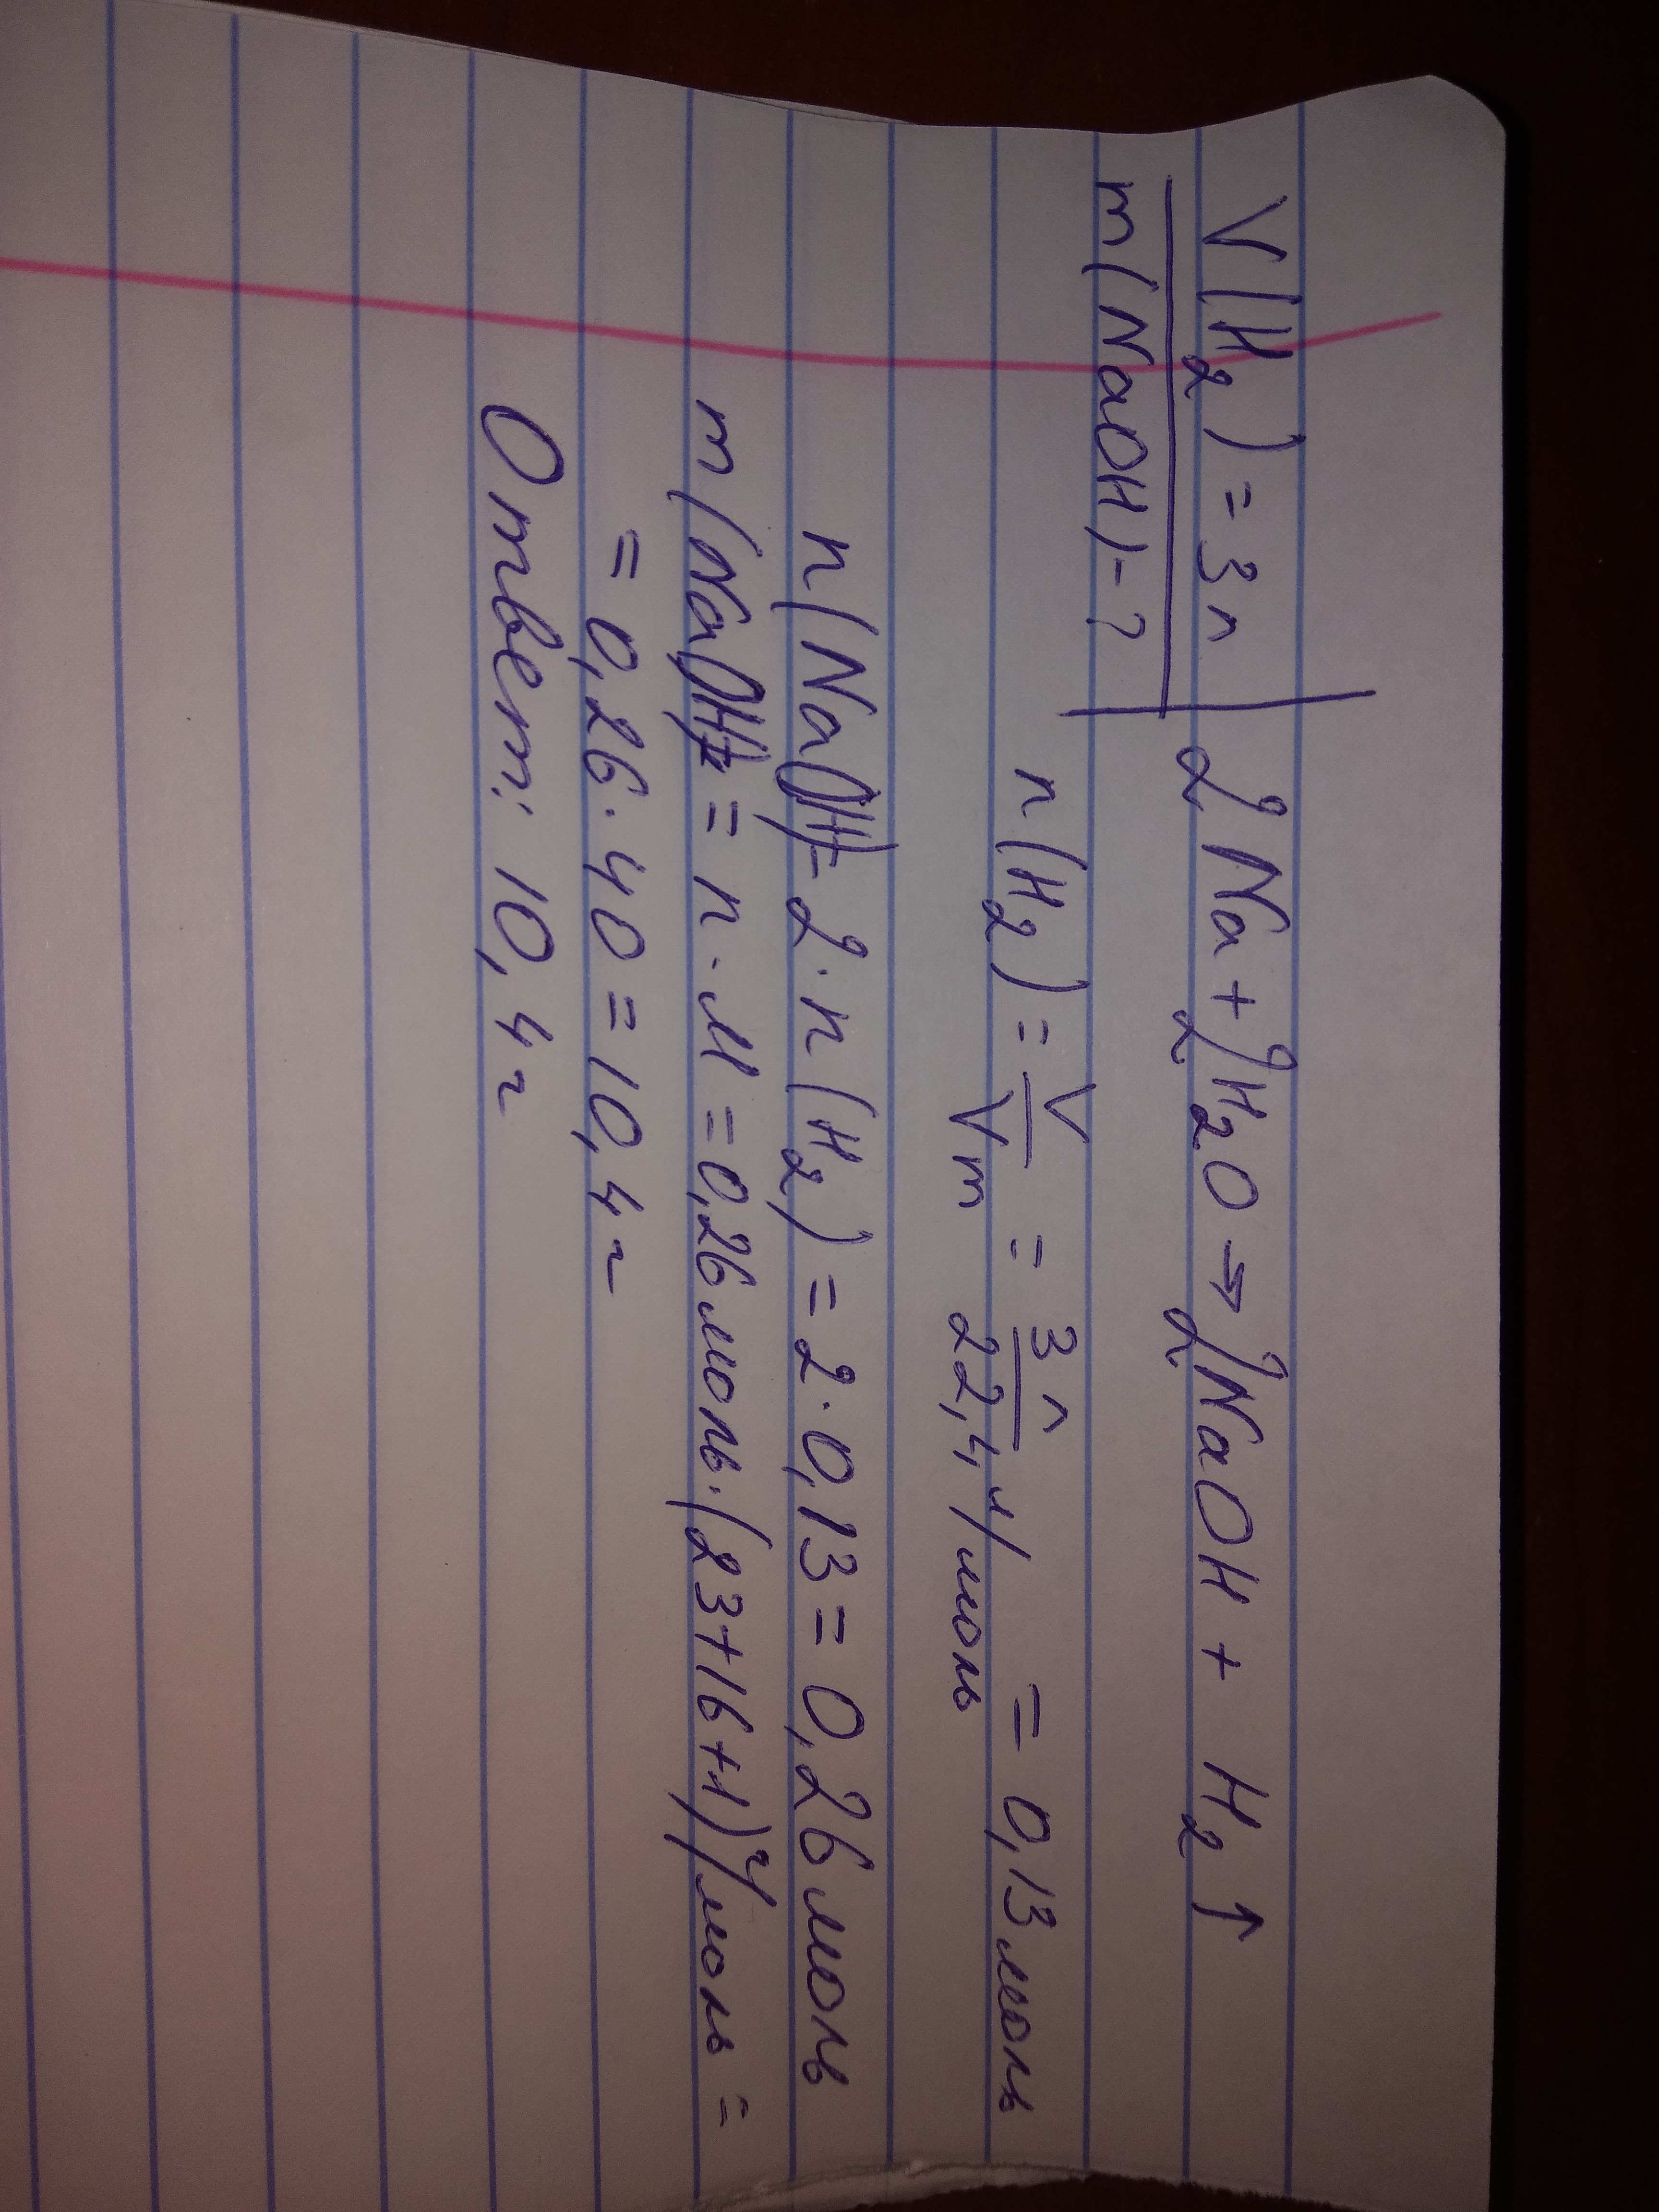 V(H₂) = 3л
m(NaOH) - ?
2Na + 2H₂O → 2NaOH + H₂↑
n(H₂) = V/Vm = 3л/22,4 л/моль = 0,13моль
n(NaOH) = 2·n(H₂) = 2·0,13 = 0,26моль
m(NaOH) = n·M = 0,26моль·(23+16+1) г/моль =
= 0,26·40 = 10,4г
Ответ: 10,4г